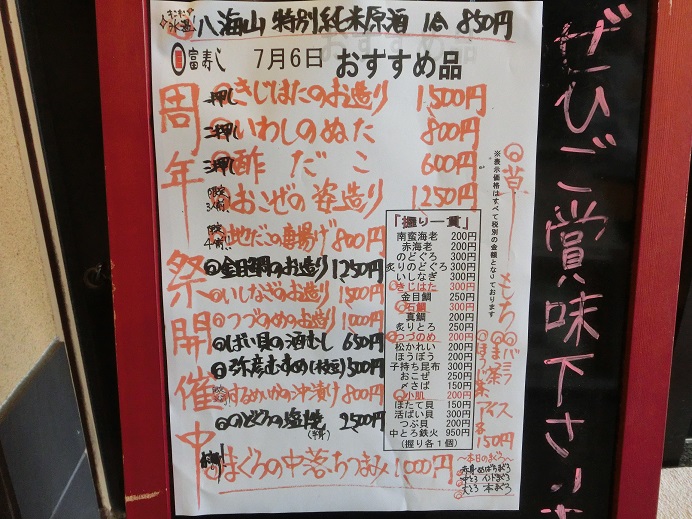 八海山 特別純米原酒 1合 850円
富寿し 7月6日 おすすめ品
周年祭開催中
一押し きじはたのお造り 1,500円
二押し いわしのぬた 800円
三押し 酢だこ 600円
限定3人前 おこぜの姿造り 1250円
限定4人前 地だこの唐揚げ 800円
金目鯛のお造り 1250円
いしなぎのお造り 1500円
つづのめのお造り 1,000円
ばい貝の酒むし 650円
弥彦むすめ(枝豆) 500円
するめいかの沖漬け 800円
のどぐろの塩焼(半身) 2500円
まぐろの中落ちつまみ 1,000円
※表示価格はすべて税別の金額となっております
「握り一貫」
南蛮海老 200円
赤海老 200円
のどぐろ 300円
炙りのどぐろ 300円
いしなぎ 300円
きじはた 300円
金目鯛 250円
石鯛 300円
真鯛 200円
炙りとろ 300円
つづのめ 200円
松かれい 200円
ほうぼう 200円
子持ち昆布 300円
おこぜ 250円
〆さば 150円
小肌 200円
ほたて貝 150円
活ばい貝 300円
つぶ貝 200円
中とろ鉄火 950円
(握り各1個)
バニラ
ほうじ茶
アイス
150円
～本日のまぐろ～
赤身 めばちまぐろ
中とろ インドまぐろ
大とろ 本まぐろ
ぜひご賞味下さいませ